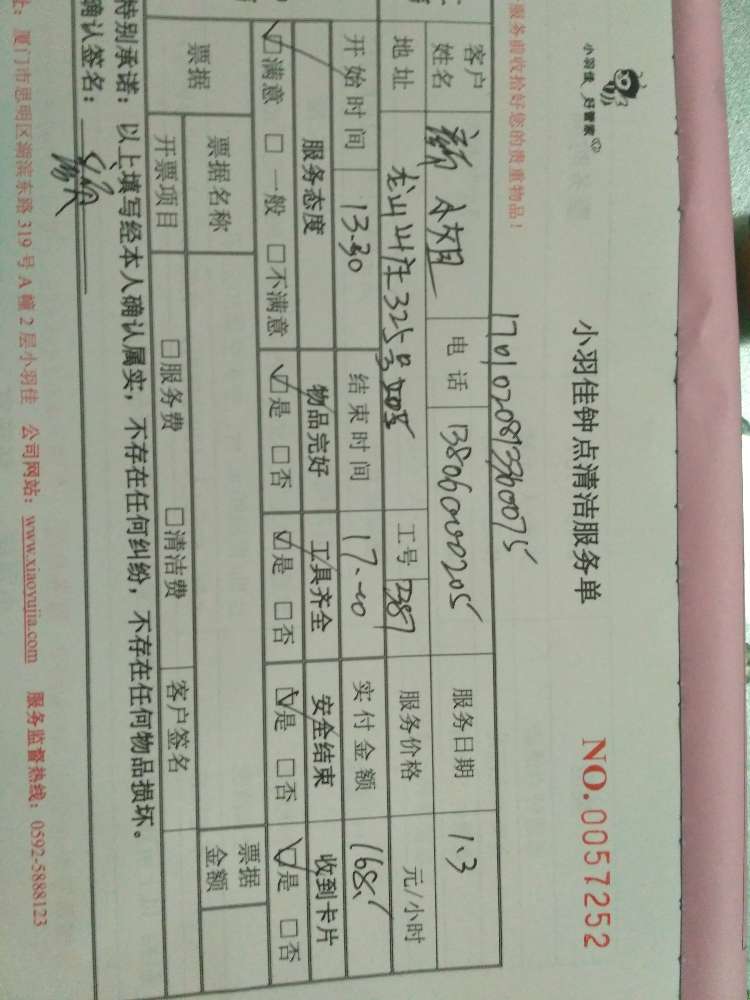 小羽佳 好管家
小羽佳钟点清洁服务单
NO.0057252
服务前收拾好您的贵重物品！
1701020813360075
客户姓名 小姐 电话 13806000205 服务日期 1.3
地址 325号 工号 服务价格 元/小时
开始时间 13.30 结束时间 17.00 实付金额 168.5
服务态度 物品完好 工具齐全 安全结束 收到卡片
☑满意 □一般 □不满意 ☑是 □否 ☑是 □否 ☑是 □否 ☑是 □否
票据 票据名称 票据金额
开票项目 □服务费 □清洁费 客户签名
特别承诺：以上填写经本人确认属实，不存在任何纠纷，不存在任何物品损坏。
确认签名：
址：厦门市思明区湖滨东路319号A幢2层小羽佳 公司网站：www.xiaoyujia.com 服务监督热线：0592-5888123